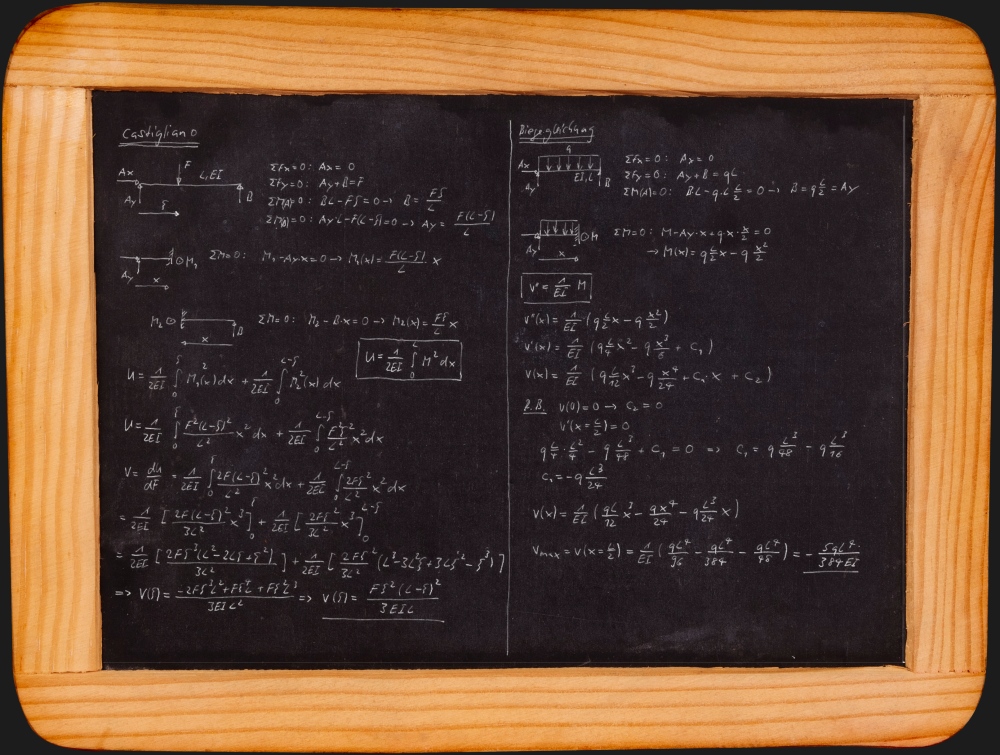 Castigliano
F
Ax L,EI
Ay B
ξ
ΣFx=0: Ax=0
ΣFy=0: Ay+B=F
ΣM(A)=0: BL-Fξ=0 → B= Fξ/L
ΣM(B)=0: Ay·L-F(L-ξ)=0 → Ay= F(L-ξ)/L
Ay M₁
x
ΣM=0: M₁-Ay·x=0 → M₁(x)= F(L-ξ)/L x
M₂ B
x
ΣM=0: M₂-B·x=0 → M₂(x)= Fξ/L x
U= 1/2EI ∫₀^L M²dx
U= 1/2EI ∫₀^ξ M₁²(x)dx + 1/2EI ∫₀^(L-ξ) M₂²(x)dx
U= 1/2EI ∫₀^ξ F²(L-ξ)²/L² x²dx + 1/2EI ∫₀^(L-ξ) F²ξ²/L² x²dx
V= dU/dF = 1/2EI ∫₀^ξ 2F(L-ξ)²/L² x²dx + 1/2EI ∫₀^(L-ξ) 2Fξ²/L² x²dx
= 1/2EI [2F(L-ξ)²/3L² x³]₀^ξ + 1/2EI [2Fξ²/3L² x³]₀^(L-ξ)
= 1/2EI [2Fξ³(L²-2Lξ+ξ²)/3L²] + 1/2EI [2Fξ²/3L² (L³-3L²ξ+3Lξ²-ξ³)]
=> V(ξ)= -2Fξ³L²+Fξ⁴L+Fξ²L³/3EIL² => V(ξ)= Fξ²(L-ξ)²/3EIL
Biegegleichung
q
Ax EI,L
Ay B
ΣFx=0: Ax=0
ΣFy=0: Ay+B=qL
ΣM(A)=0: BL-q·L·L/2=0 → B=q L/2=Ay
Ay M
x
ΣM=0: M-Ay·x+q·x·x/2=0
→ M(x)=q L/2 x-q x²/2
V"= 1/EI M
V"(x)= 1/EI (q L/2 x-q x²/2)
V'(x)= 1/EI (q L/4 x²-q x³/6+C₁)
V(x)= 1/EI (q L/12 x³-q x⁴/24+C₁·x+C₂)
R.B. V(0)=0 → C₂=0
V'(x=L/2)=0
q L/4·L²/4-q L³/48+C₁=0 => C₁=q L³/48-q L³/16
C₁=-q L³/24
V(x)= 1/EI (qL/12 x³-qx⁴/24-q L³/24 x)
Vmax=V(x=L/2)= 1/EI (qL⁴/96-qL⁴/384-qL⁴/48)=-5qL⁴/384EI